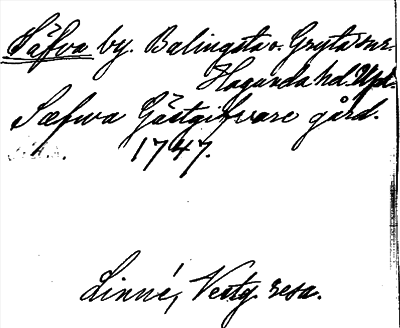 Säfva by. Balingsta o. Gryta snr.
Hagunda hd. Upl.
Sæfwa Gästgifvare gård.
1747.
Linné, Vestg. resa.